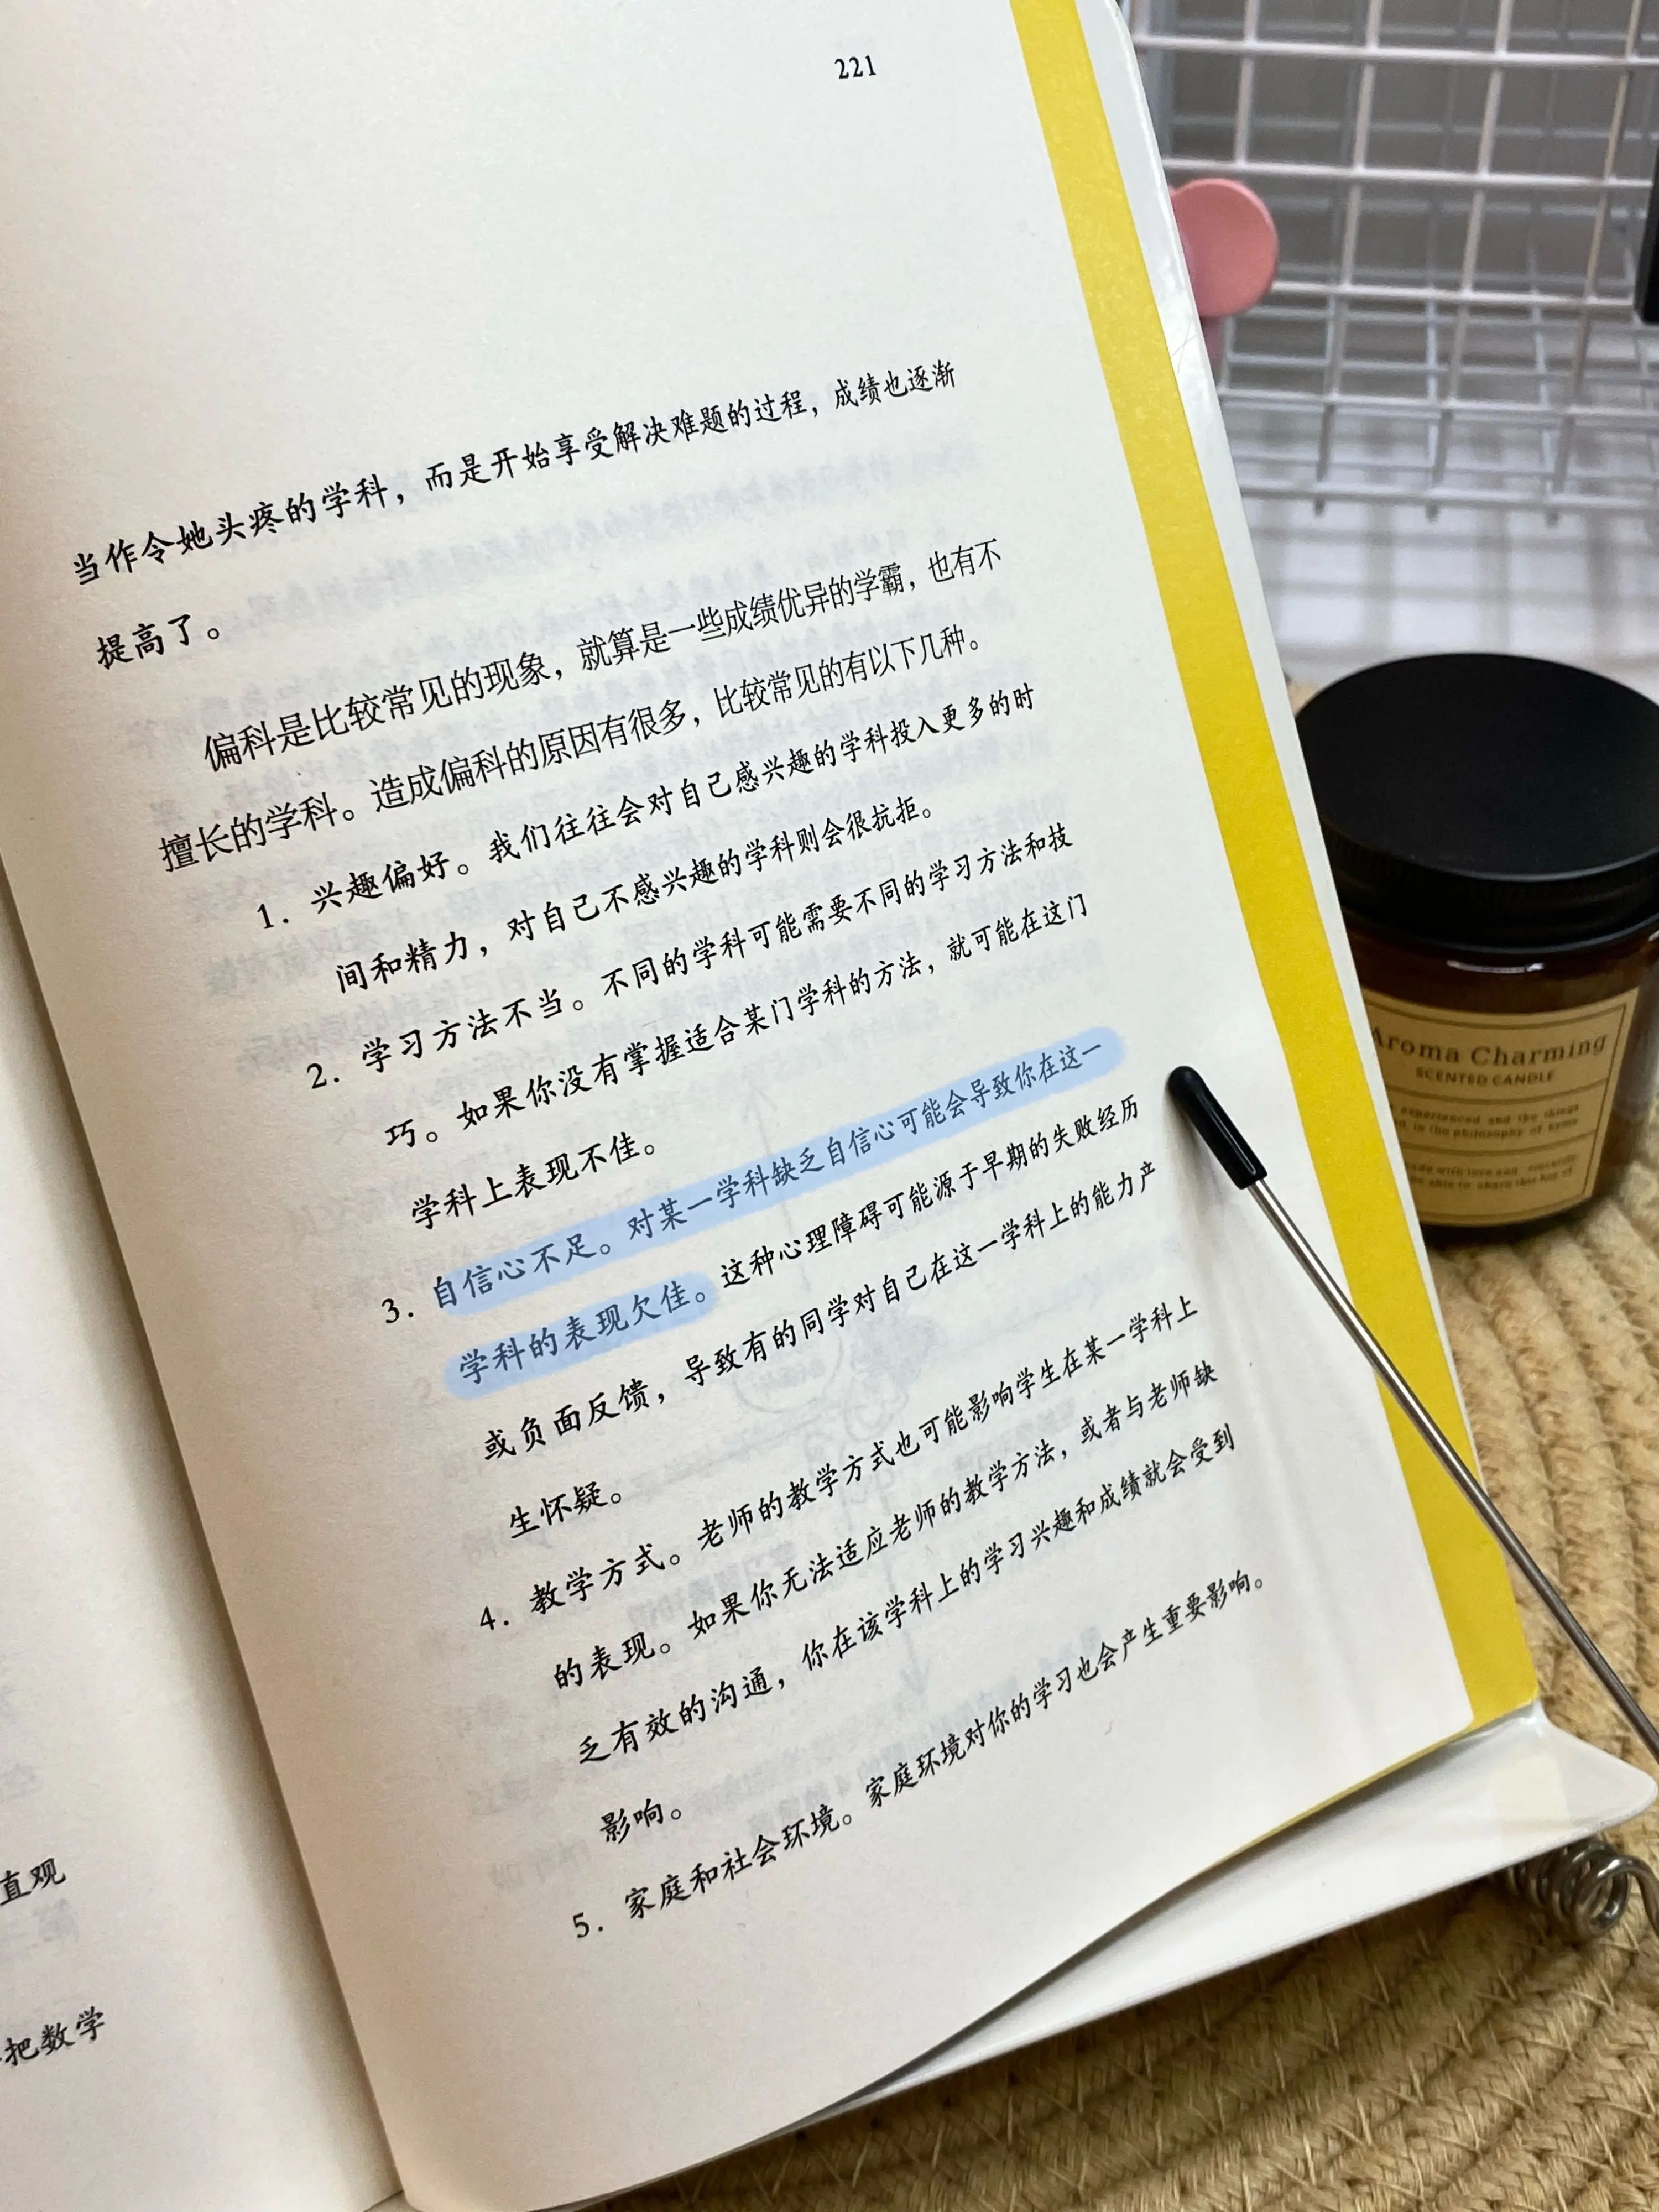 221
当作令她头疼的学科，而是开始享受解决难题的过程，成绩也逐渐
提高了。
偏科是比较常见的现象，就算是一些成绩优异的学霸，也有不
擅长的学科。造成偏科的原因有很多，比较常见的有以下几种。
1. 兴趣偏好。我们往往会对自己感兴趣的学科投入更多的时
间和精力，对自己不感兴趣的学科则会很抗拒。
2. 学习方法不当。不同的学科可能需要不同的学习方法和技
巧。如果你没有掌握适合某门学科的方法，就可能在这门
学科上表现不佳。
3. 自信心不足。对某一学科缺乏自信心可能会导致你在这一
学科的表现欠佳。这种心理障碍可能源于早期的失败经历
或负面反馈，导致有的同学对自己在这一学科上的能力产
生怀疑。
4. 教学方式。老师的教学方式也可能影响学生在某一学科上
的表现。如果你无法适应老师的教学方法，或者与老师缺
乏有效的沟通，你在该学科上的学习兴趣和成绩就会受到
影响。
5. 家庭和社会环境。家庭环境对你的学习也会产生重要影响。
直观
把数学
Aroma Charming
SCENTED CANDLE
experienced and the things
is the philosophy of